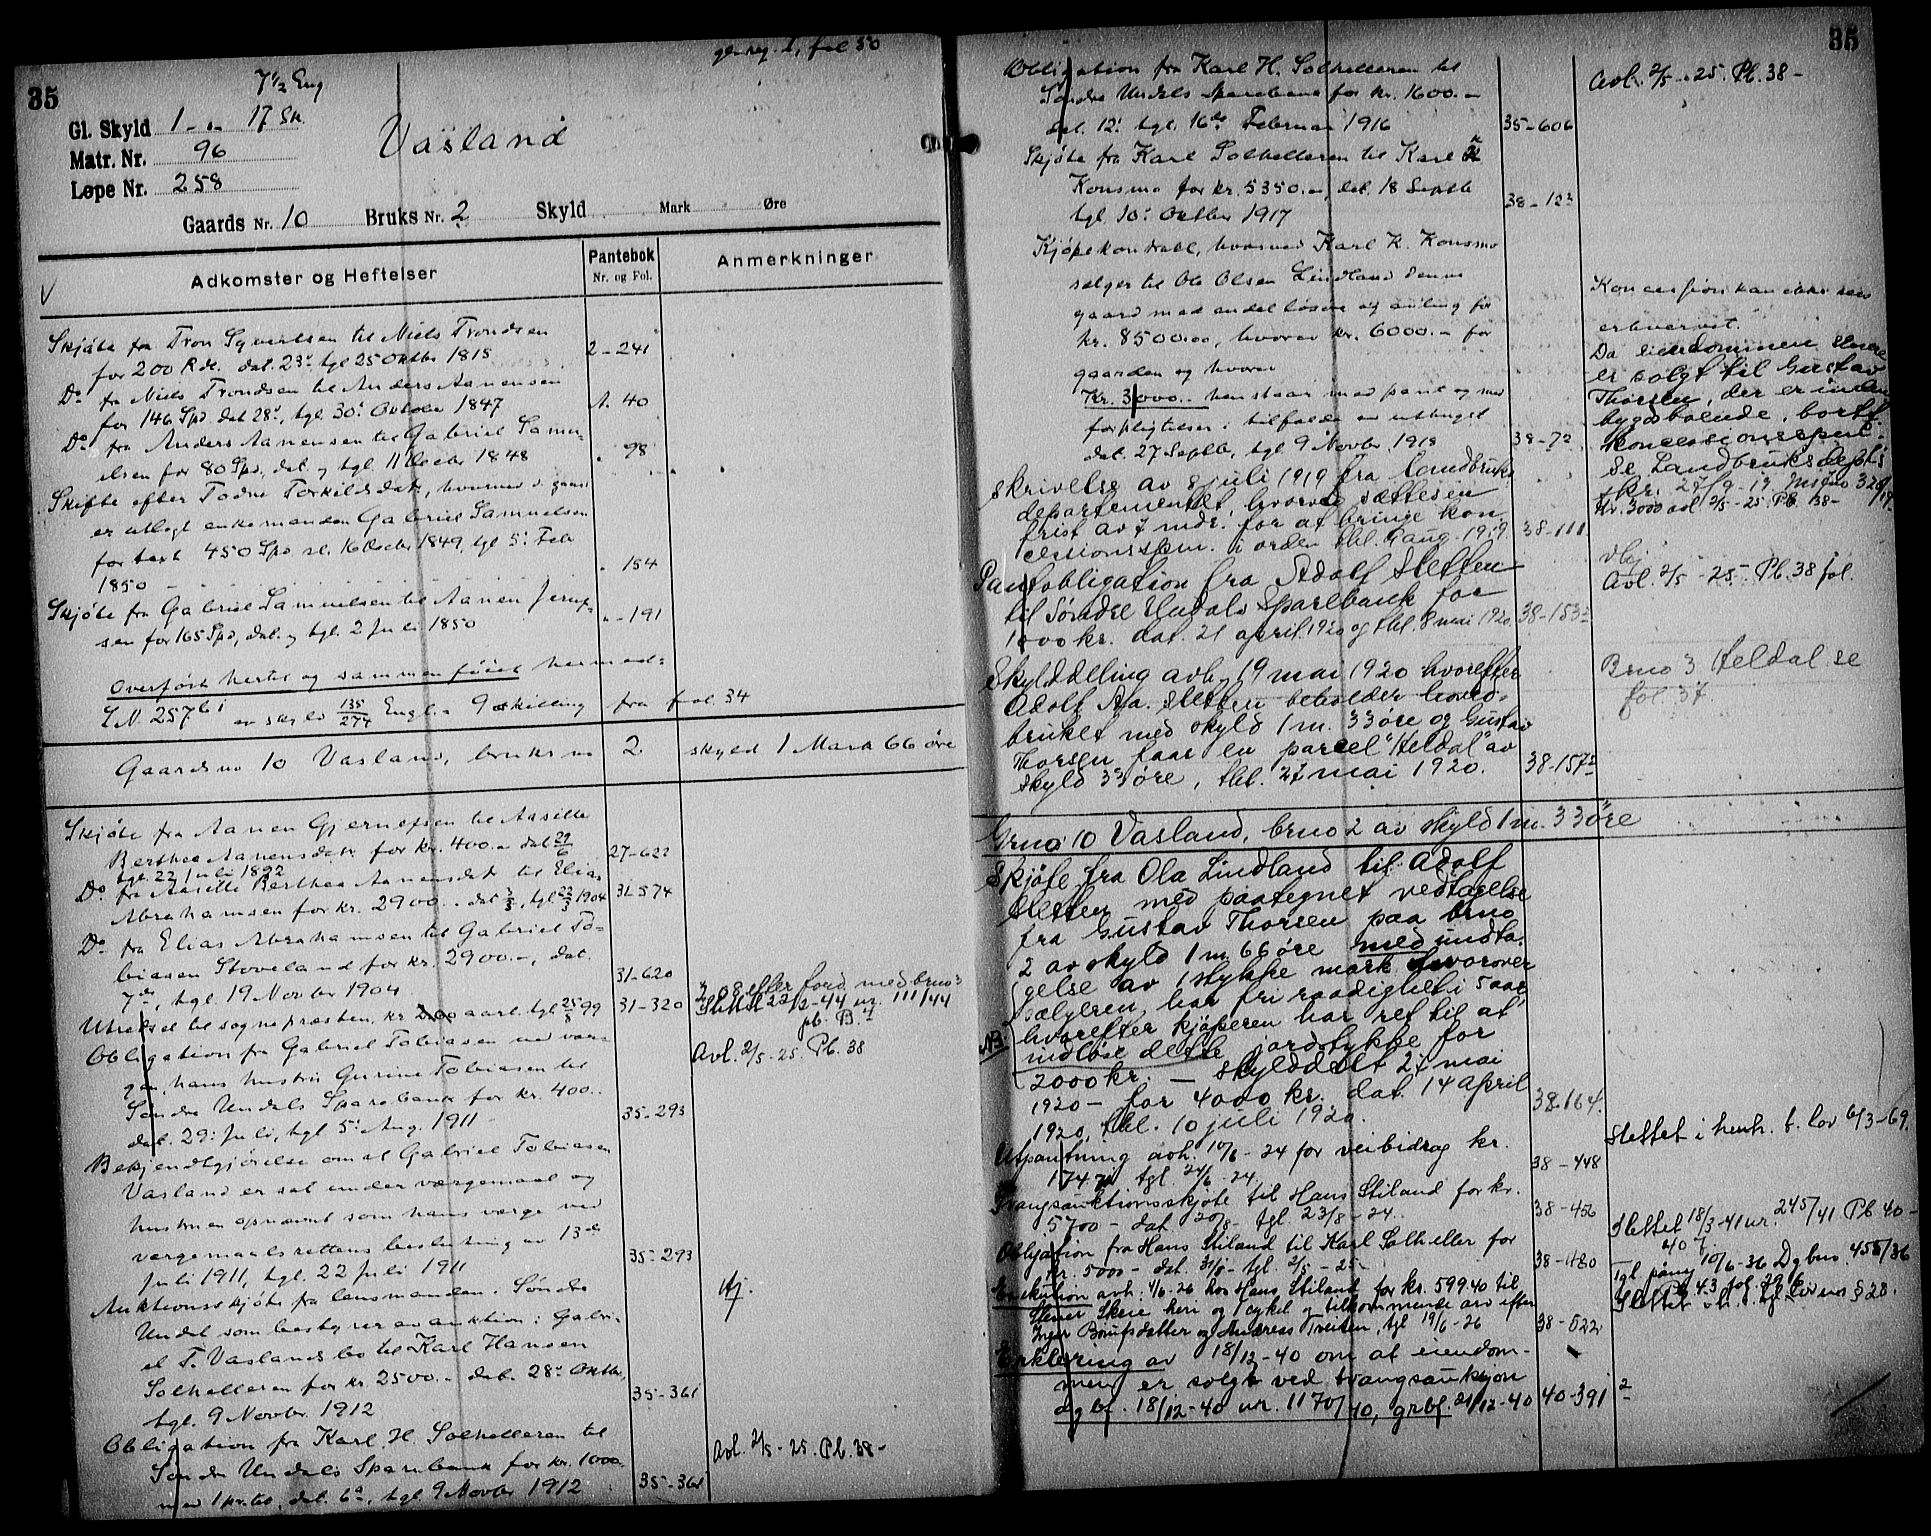 35
gl. reg. 1, fol 50
7 1/2 Eng
Gl. Skyld 1 - " - 17 Sk.
Matr. Nr. 96
Løpe Nr. 258
Vasland
Gaards Nr. 10 Bruks Nr. 2 Skyld Mark Øre
Adkomster og Heftelser
Pantebok
Nr. og Fol.
Anmerkninger
Skjøte fra Tron Syvertsen til Niels Trondsen
for 200 Rdl. dat. 23' tgl 25 Oktbr 1815 2-241
Do fra Niels Trondsen til Anders Aanensen
for 146 Spd dat 28', tgl. 30' Oktober 1847 A. 40
Do fra Anders Aanensen til Gabriel Samu-
elsen for 80 Spd, dat. og tgl. 11 Decbr 1848 " 98
Skifte efter Todne Torkildsdatr, hvorved d. gaard
er utlagt enkemanden Gabriel Samuelsen
for taxt 450 Spd sl. 16 Decbr 1849, tgl 5' Febr
1850 - " 154
Skjøte fra Gabriel Samuelsen til Aanen
sen for 165 Spd, dat. og tgl. 2 Juli 1850 " - 191
Overført hertil og sammenføiet hermed:
L.N. 257 b 1 av skyld 135/274 Engl. 9 skilling fra fol. 34
Gaardsno 10 Vasland, bruksno 2. skyld 1 Mark 66 øre
Skjøte fra Aanen Gjernefsen til Aasille
Berthea Aanensdatr for kr. 400.- dat 29/6
tgl. 22 Juli 1892 27-622
Do fra Aasille Berthea Aanensdatr til Elias
Abrahamsen for kr. 2900.- dat 3/3, tgl 22/3 1904 31-574
Do fra Elias Abrahamsen til Gabriel To-
biasen Stoveland for kr. 2900.-, dat.
7de, tgl. 19 Novbr 1904 31-620
Utredsel til sognepræsten, kr 2.00 aarl. tgl 25/8 99 31-320
og efter ford. med brno 3
Slettet 22/2-44 nr. 111/44
pb. B. 4
Obligation fra Gabriel Tobiasen med vær-
gen, hans hustru Gurine Tobiasen til
Søndre Undals Sparebank for kr. 400.-
dat. 29' Juli, tgl 5' Aug. 1911 35-293
Avl. 2/5-25. Pb. 38
Bekjendtgjørelse om at Gabriel Tobiasen
Vasland er sat under værgemaal og
hustruen opnævnt som hans værge ved
værgemaalsrettens beslutning av 13de
Juli 1911, tgl. 22 Juli 1911 35-293
Auktionsskjøte fra lensmanden i Søndre
Undal som bestyrer av auktion i Gabri-
el T. Vaslands bo til Karl Hansen
Solhelleren for kr. 2500.- dat. 28' Oktbr,
tgl. 9 Novbr. 1912 35-361
Obligation fra Karl. H. Solhelleren til
Søndre Undals Sparebank for kr. 1000.-
med 1 pr.tet, dat. 6', tgl. 9 Novbr 1912 35-361
Avl. 2/5-25. Pb. 38-
35
Obligation fra Karl H. Solhelleren til
Søndre Undals Sparebank for kr. 1600.-
dat. 12' tgl. 16de Februar 1916 35-606
Avl. 2/5-25. Pb. 38-
Skjøte fra Karl Solhelleren til Karl K
Konsmo for kr. 5350.-, dat. 18 Septb
tgl 10' Oktbr 1917 38-123
Kjøpekontrakt, hvorved Karl K. Konsmo
sælger til Ole Olsen Lindland denne
gaard med endel løsøre og avling for
kr. 8500.00, hvorav kr. 6000.- for
gaarden og hvorav
Kr. 3000.- henstaar med pant og med
forpligtelser i tilfælde av utbruget
dat. 27 Septb, tgl 9 Novbr. 1918 38-72
Koncession kan ikke sees
erhvervet.
Da eiendommen senere
er solgt til Gustav
Thorsen, der er inden
bygdboende, bortf.
koncessionsspml.
Se Landbruksdept's
skr. 27/9-19
Kr. 3000 avl. 2/5-25. Pb. 38-
Skrivelse av 8 juli 1919 fra landbruks
departementet, hvorved sættes en
frist av 7 mdr. for at bringe kon
cessionsspm. i orden tbl. 9 aug. 1919 38-111
Pantobligation fra Adolf Sletten
til Søndre Undals Sparebank for
1000 kr. dat. 21 april 1920 og tbl. 8 mai 1920. 38-153
Avl. 2/5-25. Pb. 38 fol.
Skylddeling avh. 19 mai 1920 hvorefter
Adolf Aa. Sletten beholder hoved-
bruket med skyld 1 m. 33 øre og Gustav
Thorsen faar en parcel "Heldal" av
skyld 33 øre, tbl. 27 mai 1920. 38-157
Brno 3 Heldal se
fol. 37
Grno 10 Vasland, brno 2 av skyld 1 m. 33 øre
Skjøte fra Ola Lindland til Adolf
Sletten med paategnet vedtagelse
fra Gustav Thorsen paa brno
2 av skyld 1 m 66 øre med undta-
gelse av 1 stykke mark hvorover
sælgeren har fri raadighet i 5 aar,
hvorefter kjøperen har ret til at
NB indløse dette jordstykke for
2000 kr. - skylddelt 27 mai
1920 - for 4000 kr. dat. 14 april
1920, tbl. 10 juli 1920. 38-164.
Utpantning avh. 10/6-24 for veibidrag kr.
174.71 tgl. 24/6-24. 38-448
Slettet i henh. t. lov 6/3-69.
Tvangsauktionsskjøte til Hans Stiland for kr.
5700 - dat 20/8- tgl. 23/8-24. 38-456
Obligation fra Hans Stiland til Karl Solheller for
kr. 5000 - dat. 31/8- tgl. 2/5-25- 38-480
Slettet 18/3-41 nr. 245/41 Pb 40-
407.
Exekution avh. 4/6-26 hos Hans Stiland for kr. 599.40 til
Stener Skeie i heri og 1 cykel og tilkommende arv efter
Inger Børufsdatter og Andreas Treiten, tgl 19/6-26 38-522
Tgl. pany 10/6-36 Dgbnr. 455/36
Pb 43 fol. 296
Slettet i h. t. tgl. lovens § 28.
Erklæring av 18/12-40 om at eiendom-
men er solgt ved tvangsauksjon
dgbf. 18/12-40 nr. 1170/40, grbf. 21/12-40 40-391